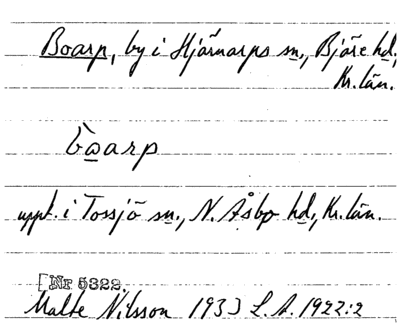 Boarp, by i Hjärnarps sn., Bjäre hd.,
Kr. län.
bòarp
uppt. i Tossjö sn., N. Åsbo hd., Kr. län.
[Nr 5322.
Malte Nilsson 1933 L.A. 1922:2